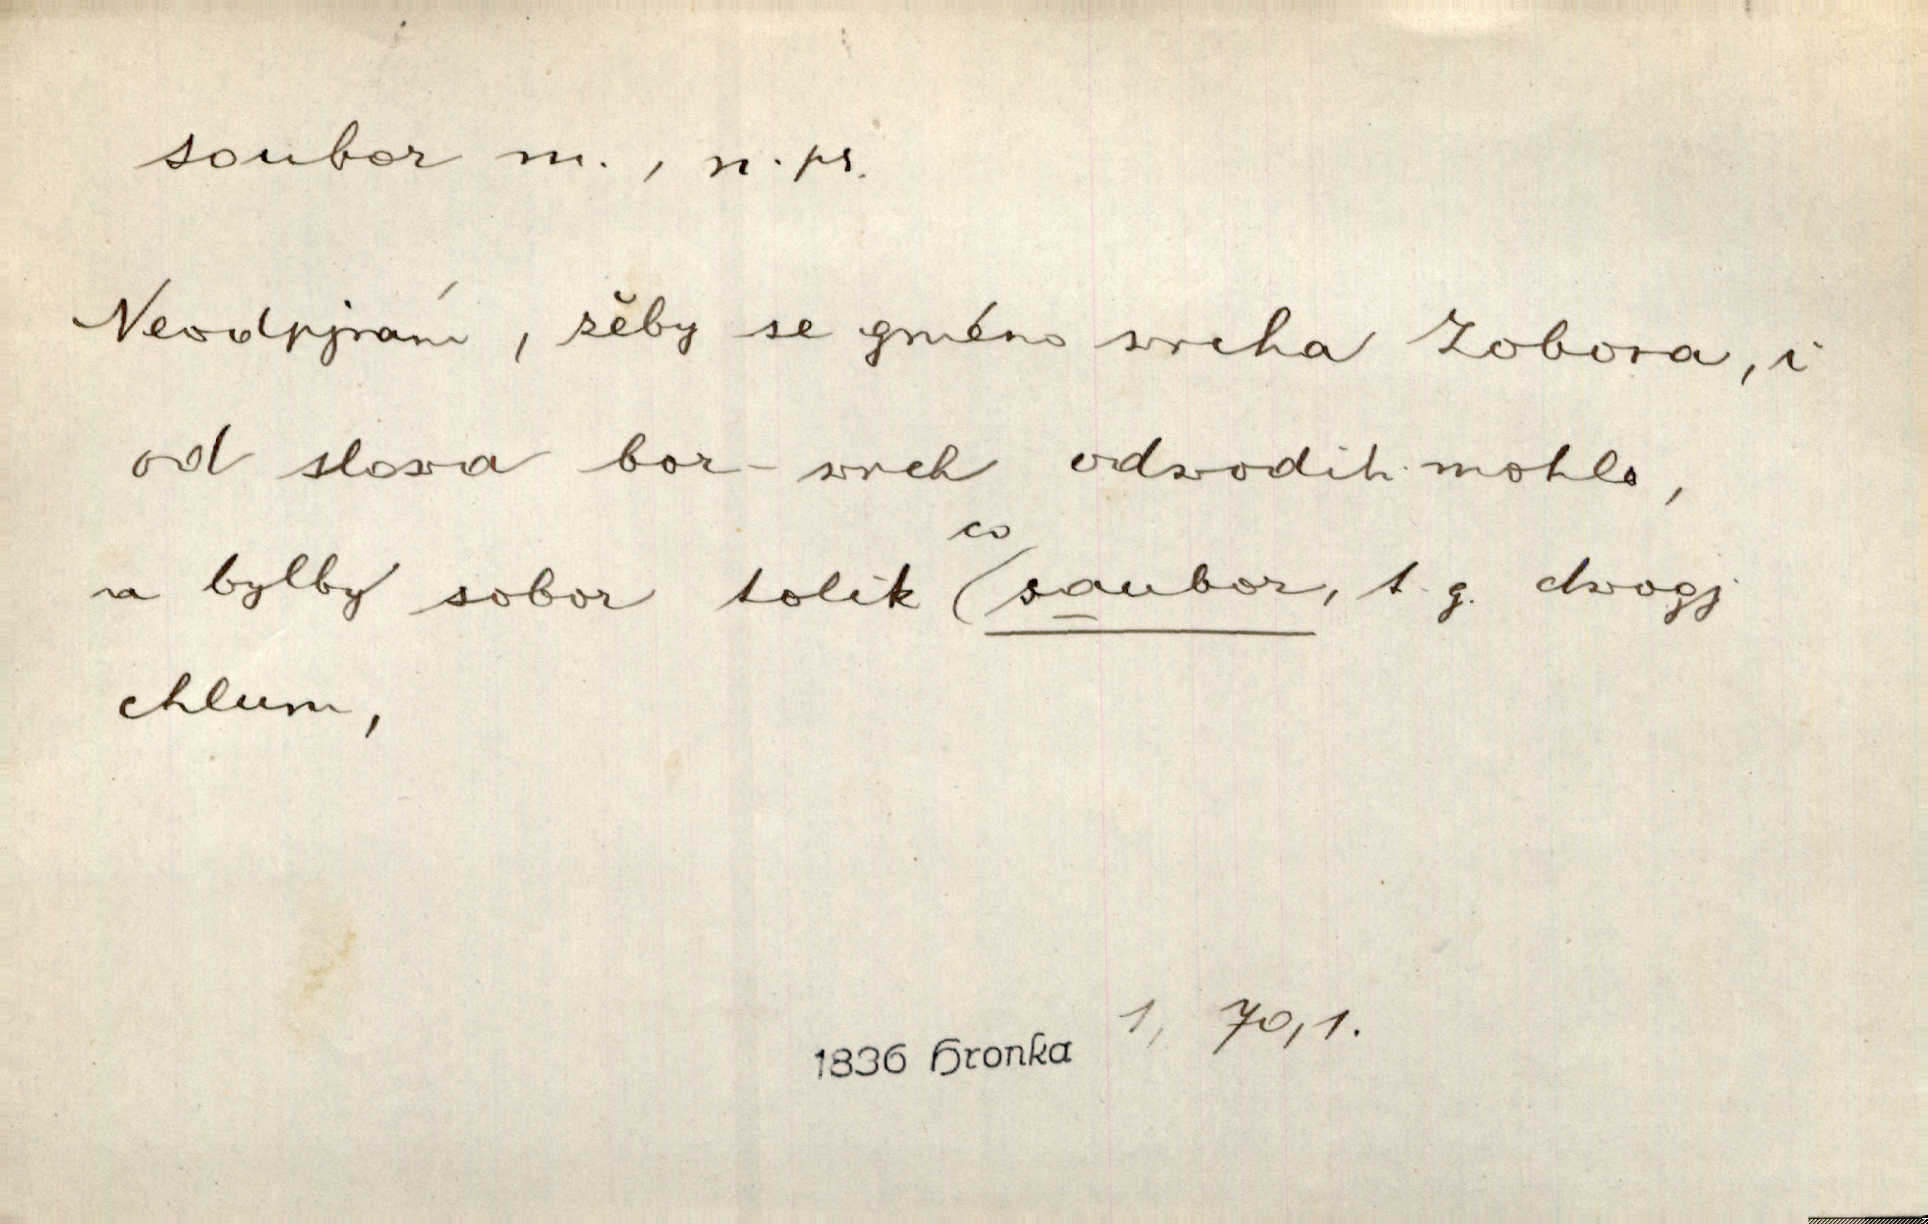 soubor m., n. pr.
Neodpjrám, žěby se gméno wrcha Zobora, i
od slowa bor - wrch odwodit mohlo,
a bylby sobor tolik co saubor, t. g. dwogj
chlum,
1836 Hronka 1, 70, 1.